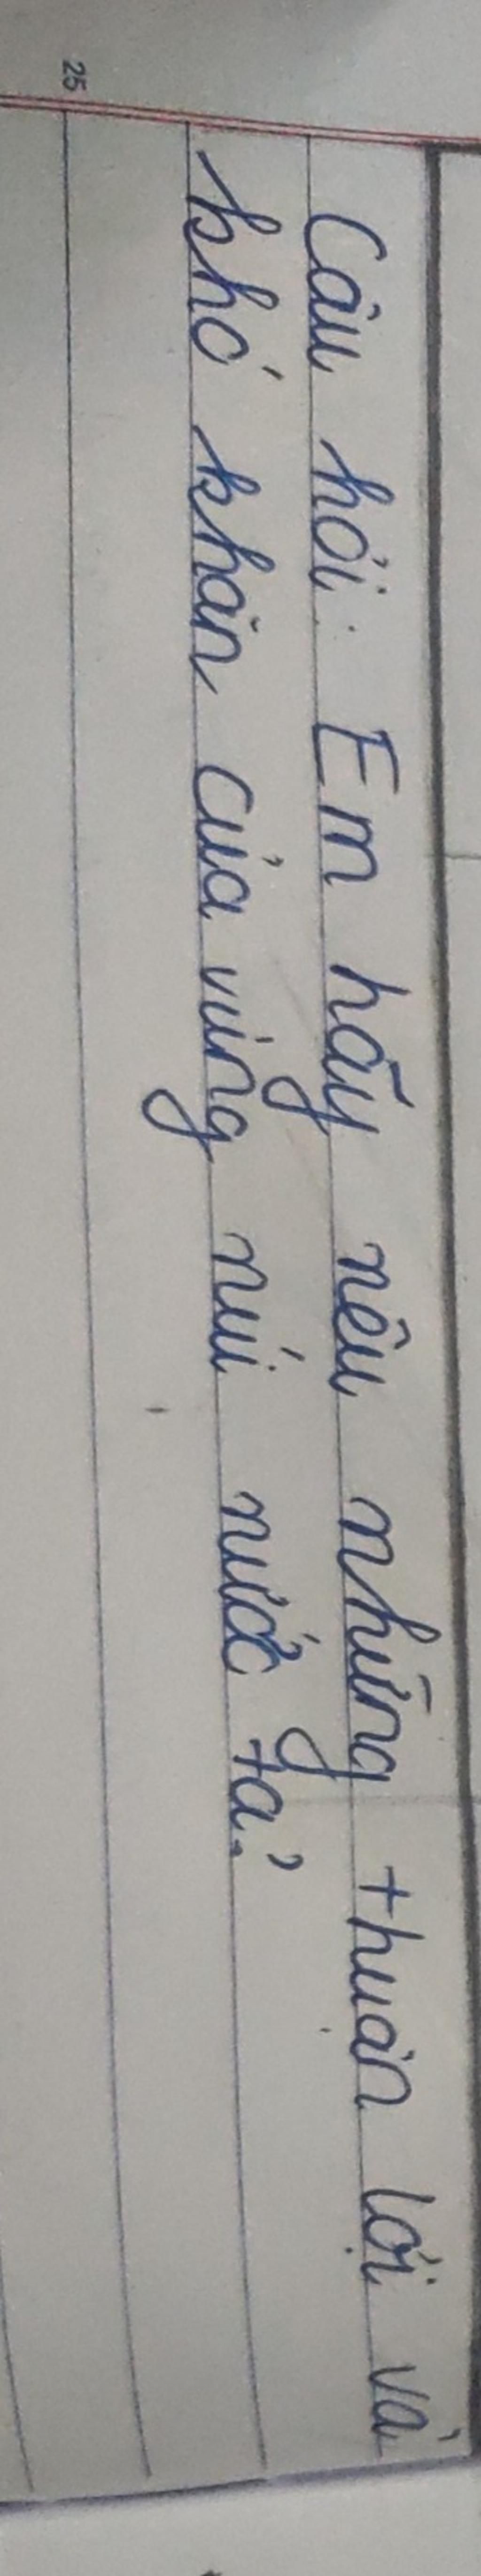 25
Câu hỏi: Em hãy nêu những thuận lợi và
khó khăn của vùng núi nước ta?